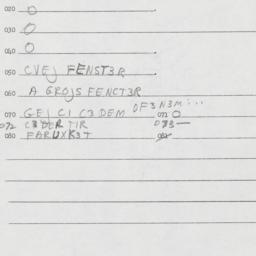 020 O
030 O
040 O
050 CVEJ FENST3R
060 A GROJS FENCT3R
070 GEJ CI C3 DEM OF3N3M... 072 O
072 TIR 073 —
080 FARUXK3T